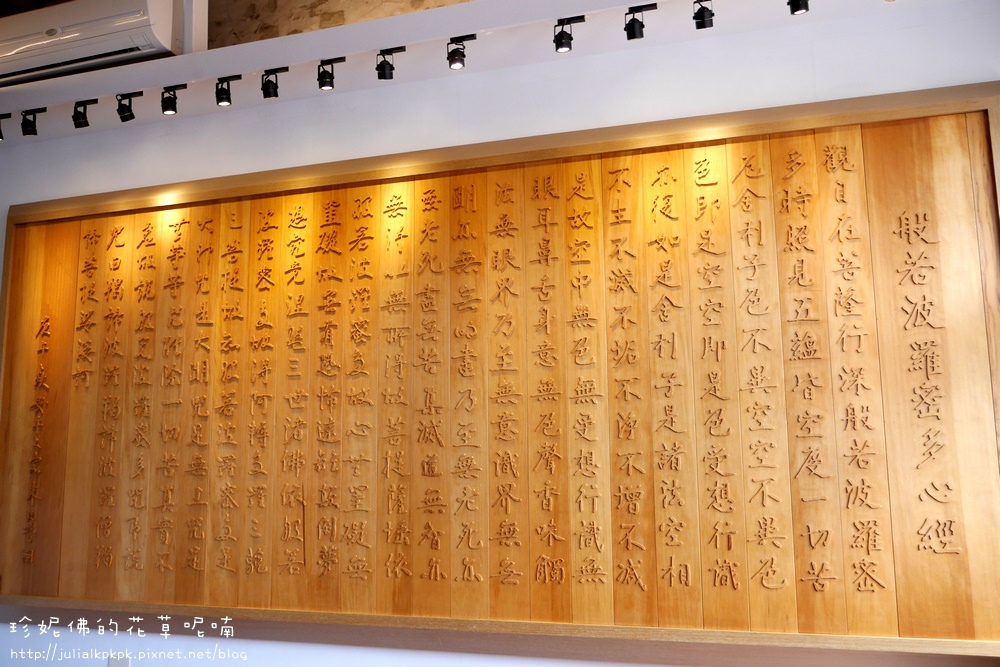 般若波羅密多心經
觀自在菩薩行深般若波羅密
多時照見五蘊皆空度一切苦
厄舍利子色不異空空不異色
色即是空空即是色受想行識
亦復如是舍利子是諸法空相
不生不滅不垢不淨不增不減
是故空中無色無受想行識無
眼耳鼻舌身意無色聲香味觸
法無眼界乃至無意識界無無
明亦無無明盡乃至無老死亦
無老死盡無苦集滅道無智亦
無得以無所得故菩提薩埵依
般若波羅密多故心無罣礙無
罣礙故無有恐怖遠離顛倒夢
想究竟涅槃三世諸佛依般若
波羅密多故得阿耨多羅三藐
三菩提故知般若波羅密多是
大神咒是大明咒是無上咒是
無等等咒能除一切苦真實不
虛故說般若波羅密多咒即說
咒曰揭諦波羅揭諦波羅僧揭
諦菩提娑婆訶
珍妮佛的花草呢喃
http://julialkpkpk.pixnet.net/blog